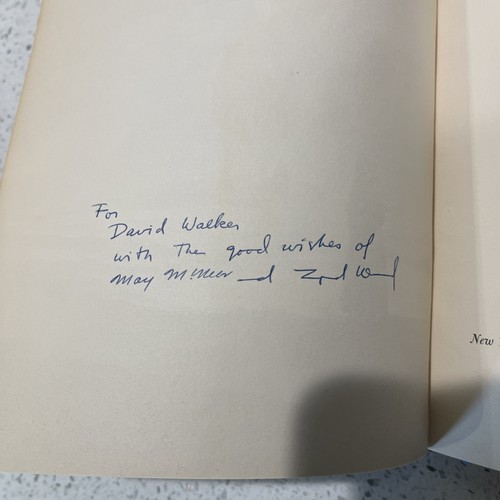 For
David Walker
with The good wishes of
May McNeer and Lynd Ward
New